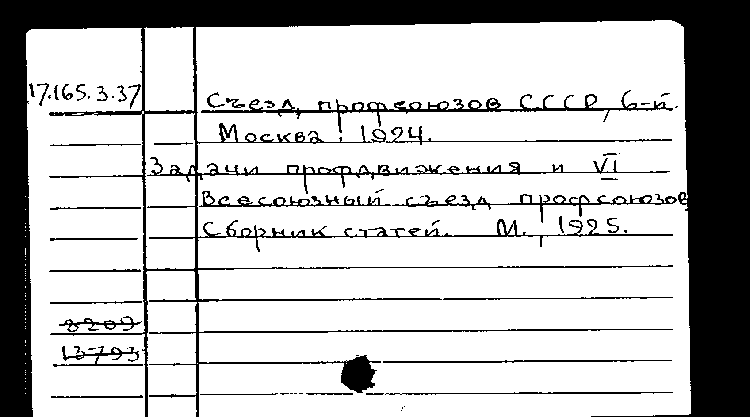 17.165.3.37
Съезд профсоюзов СССР, 6-й.
Москва. 1924.
Задачи профдвижения и VI
Всесоюзный съезд профсоюзов
Сборник статей. М., 1925.
8209
13793